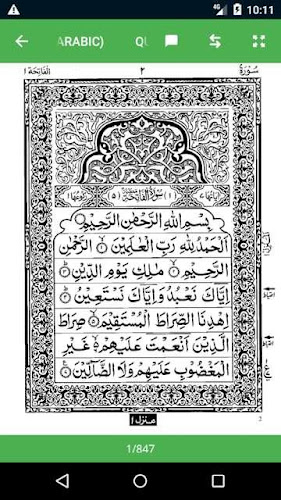 4G 10:11
ARABIC) QU
الفاتحة ١ ٢ سورة
سورة الفاتحة
بِسْمِ اللّٰهِ الرَّحْمٰنِ الرَّحِيْمِ
اَلْحَمْدُ لِلّٰهِ رَبِّ الْعٰلَمِيْنَ ۙ۝١ الرَّحْمٰنِ
الرَّحِيْمِ ۙ۝٢ مٰلِكِ يَوْمِ الدِّيْنِ ؕ۝٣
اِيَّاكَ نَعْبُدُ وَاِيَّاكَ نَسْتَعِيْنُ ؕ۝٤
اِهْدِنَا الصِّرَاطَ الْمُسْتَقِيْمَ ۙ۝٥ صِرَاطَ
الَّذِيْنَ اَنْعَمْتَ عَلَيْهِمْ ۙ۬۝٦ غَيْرِ
الْمَغْضُوْبِ عَلَيْهِمْ وَلَا الضَّآلِّيْنَ ۝٧
منزل ١
1/847